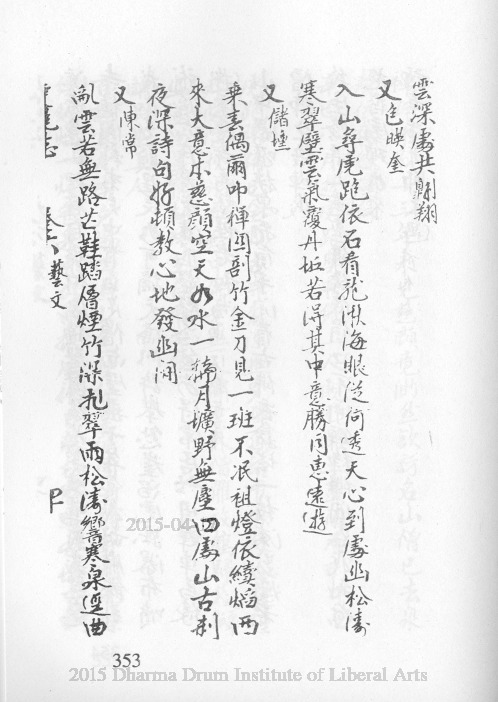 雲深處共翺翔
又包暎奎
入山尋虎跑依石看龍湫海眼從何透天心到處幽松濤
寒翠壁雲氣覆丹坵若得其中意勝同惠遠遊
又儲
乘春偶爾叩禪關剖竹金刀見一班不泯祖燈依續焰西
來大意本慈顏空天如水一輪月壙野無塵四處山古刹
夜深詩句妙頓教心地發幽閑
又陳常
亂雲若無路芒鞋踏層煙竹深翠雨松濤響寒泉逕曲
藝文
353
2015-04
2015 Dharma Drum Institute of Liberal Arts